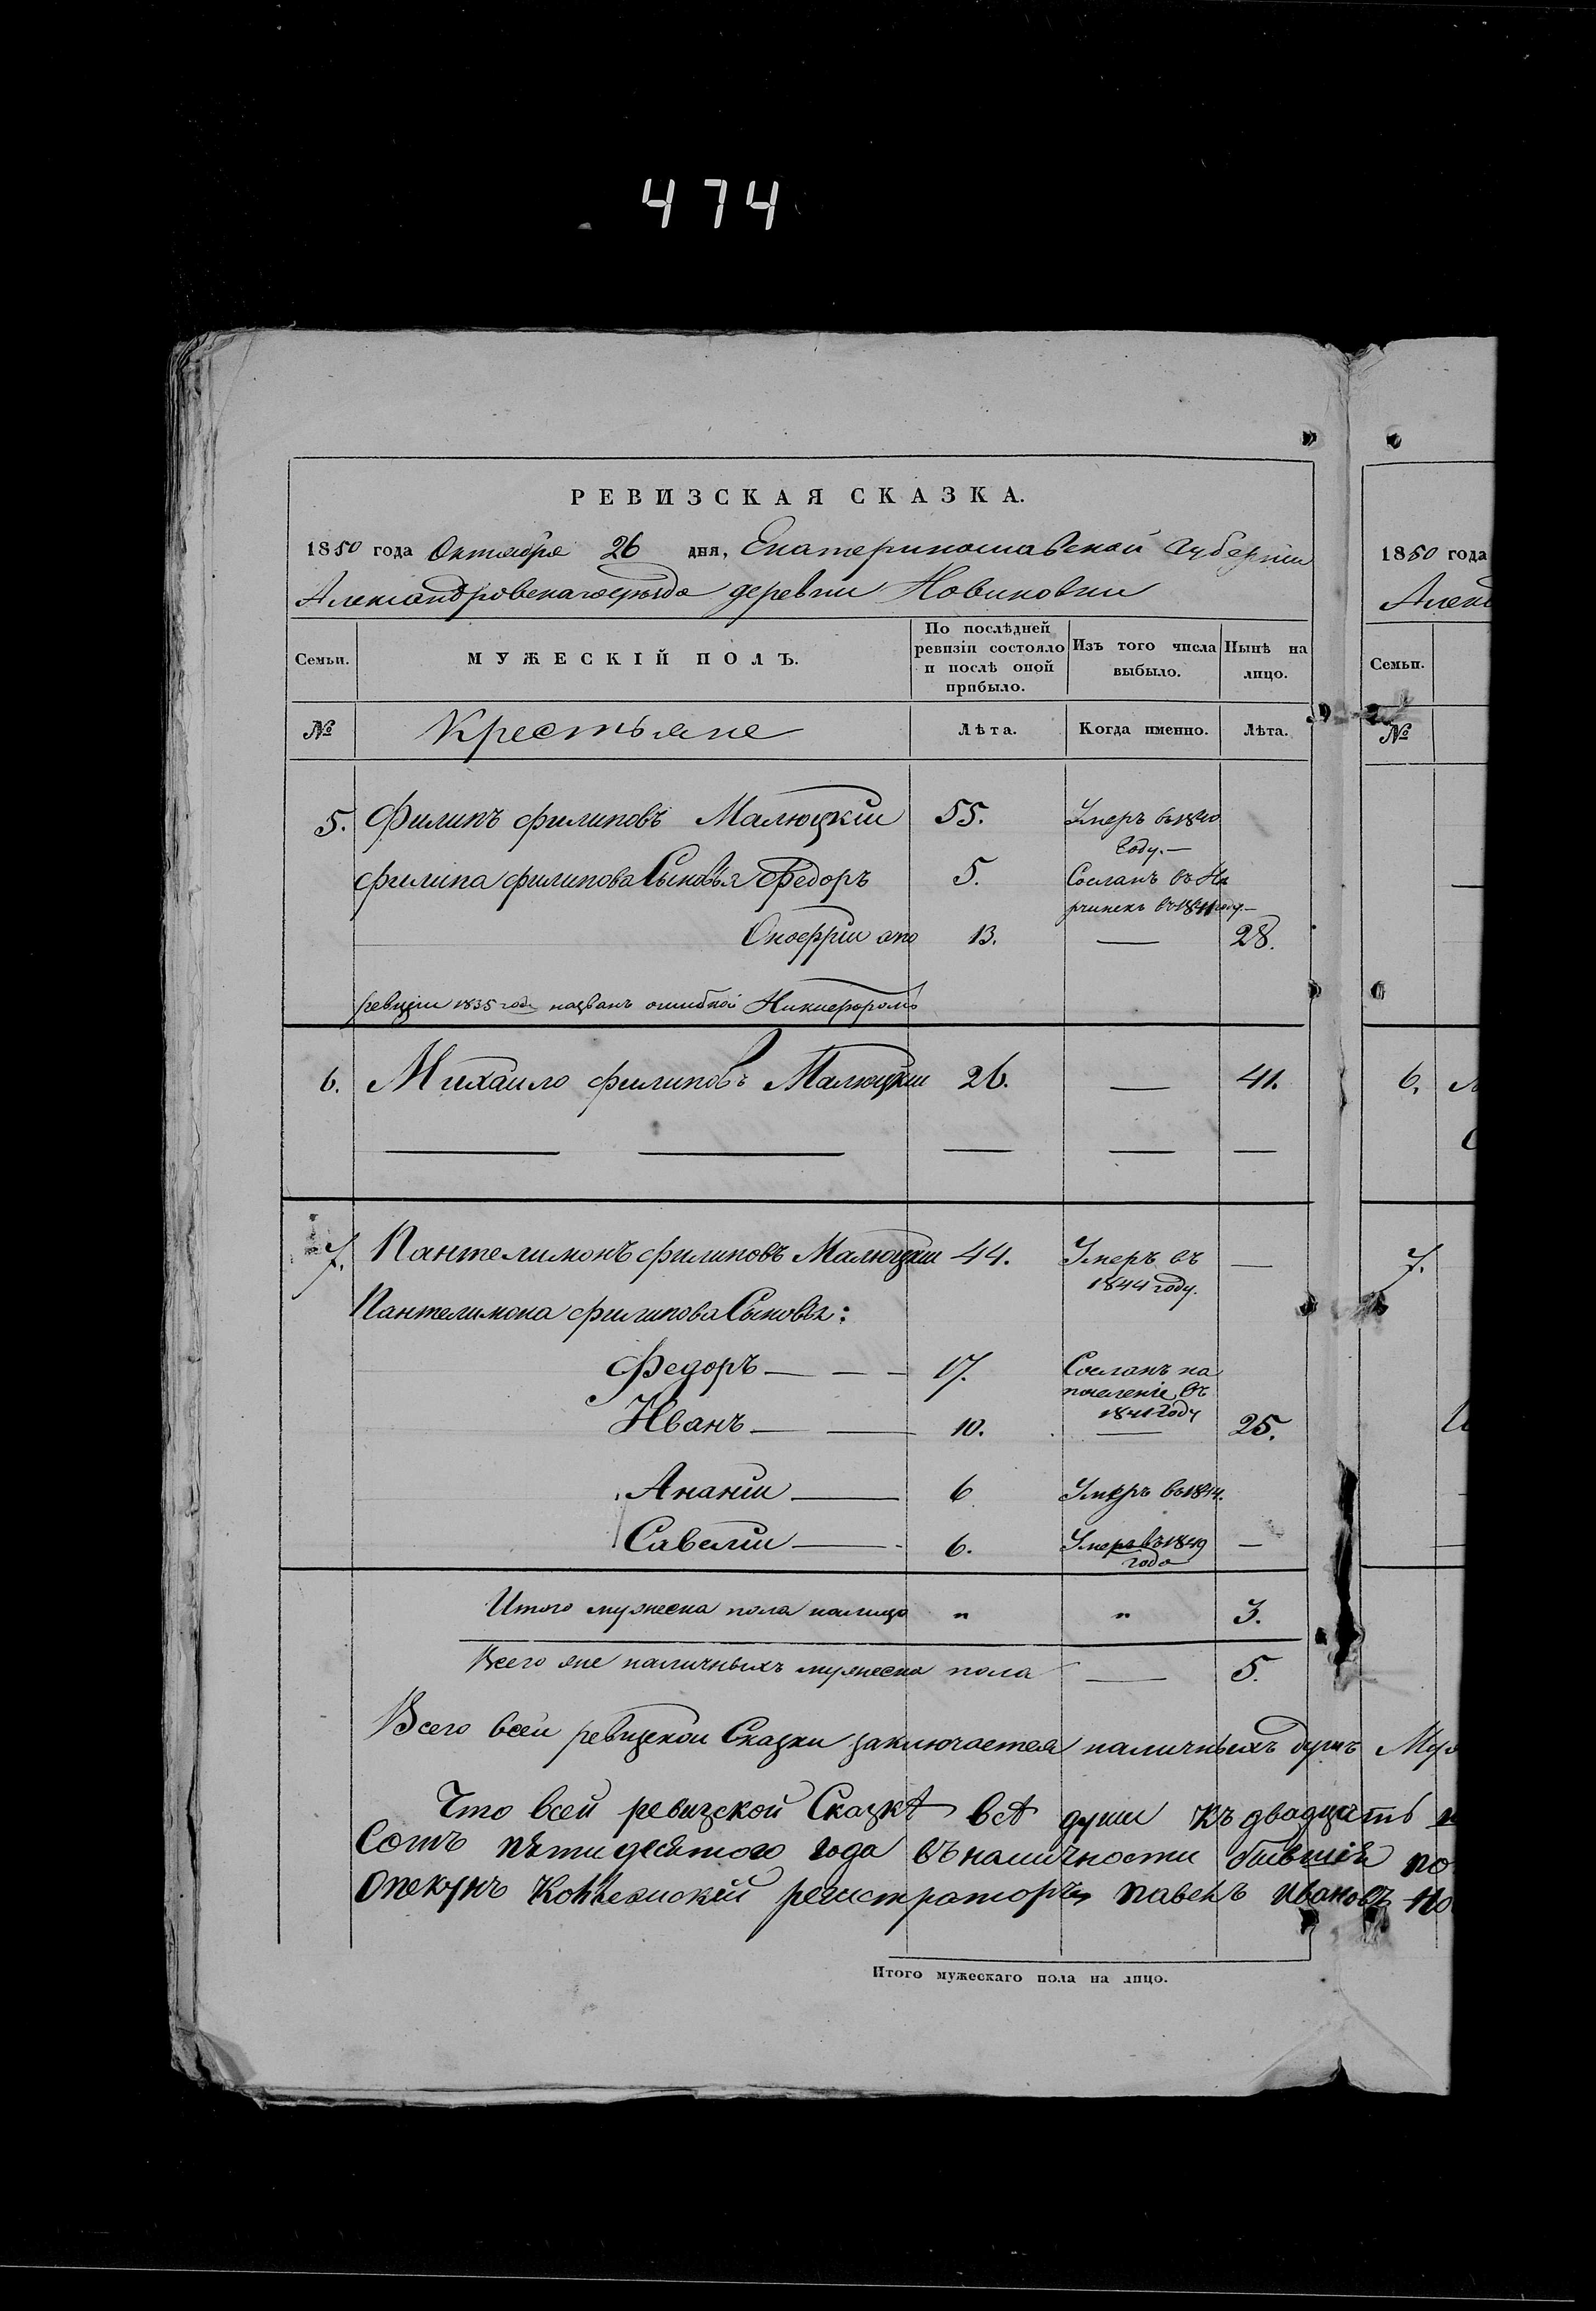 474
РЕВИЗСКАЯ СКАЗКА.
1850 года Октября 26 дня, Екатеринославской губернии
Александровскаго уѣзда деревни Новиковки
Семьи. МУЖЕСКІЙ ПОЛЪ. По послѣдней ревизіи состояло и послѣ оной прибыло. Изъ того числа выбыло. Нынѣ на лицо.
№ Крестьяне Лѣта. Когда именно. Лѣта.
5. Филипъ филиповъ Малюцкій 55. Умеръ въ 1840 году.—
филипа филипова Сыновья Федоръ 5. Сосланъ въ Нерчинскъ въ 1841 году.—
Онофрій по 13. — 28.
ревизіи 1835 года названъ ошибкой Никифоромъ
6. Михайло филиповъ Малюцкій 26. — 41.
7. Пантелимонъ филиповъ Малюцкій 44. Умеръ въ 1844 году. —
Пантелимона филипова Сыновья:
Федоръ — — — 17. Сосланъ на поселеніе въ 1841 году
Иванъ — — 10. — 25.
Ананій — 6 Умеръ въ 1844.
Савелій — 6. Умеръ въ 1849 года —
Итого мужеска пола налицо " " 3.
Всего же наличныхъ мужеска пола — 5.
Всего всей ревизской Сказки заключается наличныхъ душъ Муж
Что всей ревизской Сказкѣ всѣ души къ двадцать
Сотъ пятидесятого года въ наличности бывшіе по
Опекунъ Коллежскій регистраторъ павелъ ивановъ
Итого мужескаго пола на лицо.
1850 года
Алекс
Семьи.
№
6.
7.